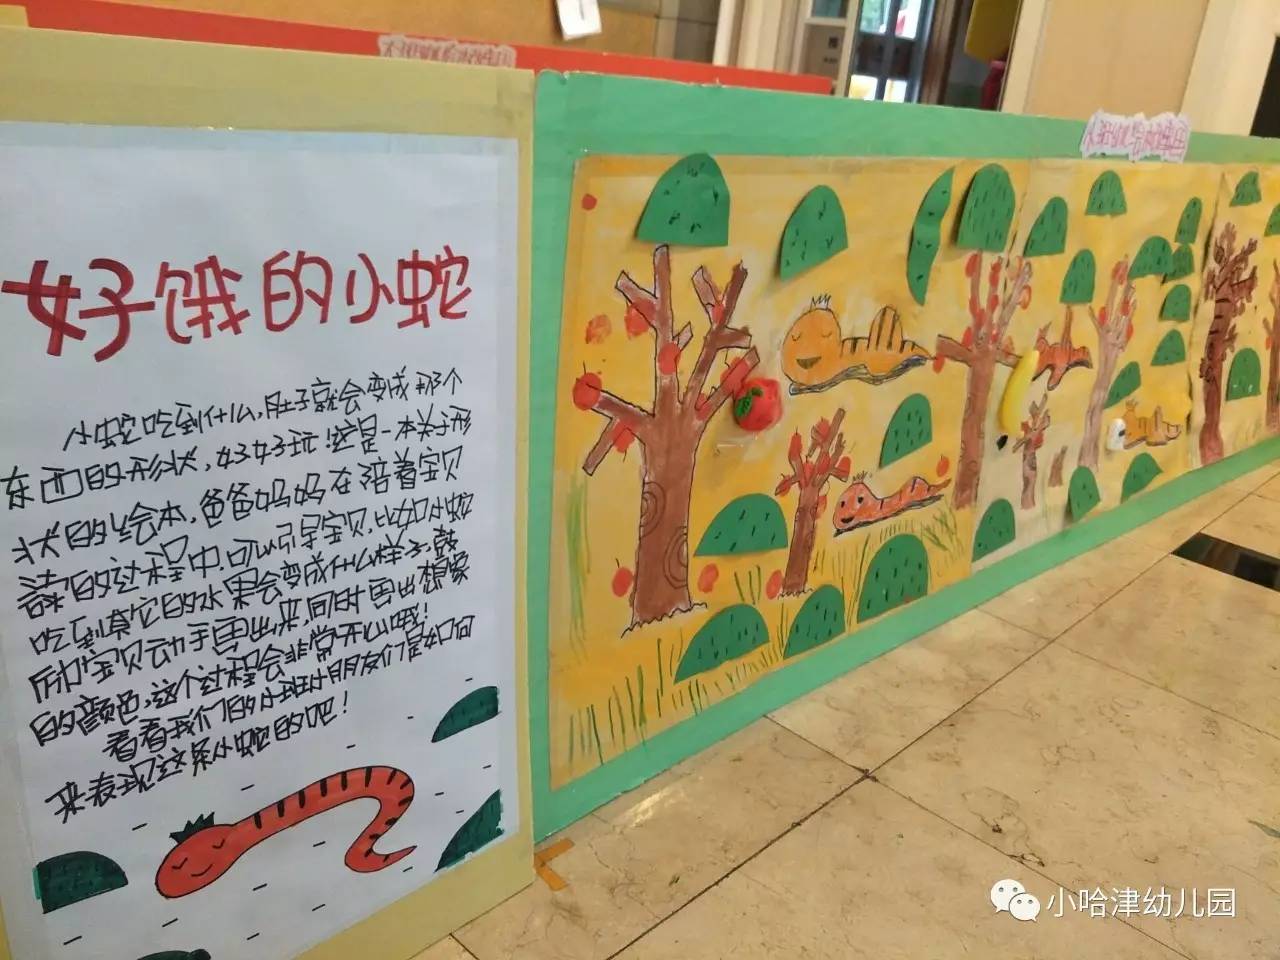 好饿的小蛇
小蛇吃到什么,肚子就会变成那个
东西的形状,好好玩!这是一本关于形
状的绘本,爸爸妈妈在陪着宝贝
读的过程中,可以引导宝贝,比如小蛇
吃到其它的水果会变成什么样子,鼓
励宝贝动手画出来,同时画出想象
的颜色,这个过程会非常开心哦!
看看我们的小班小朋友们是如何
来表现这条小蛇的吧!
小哈津幼儿园